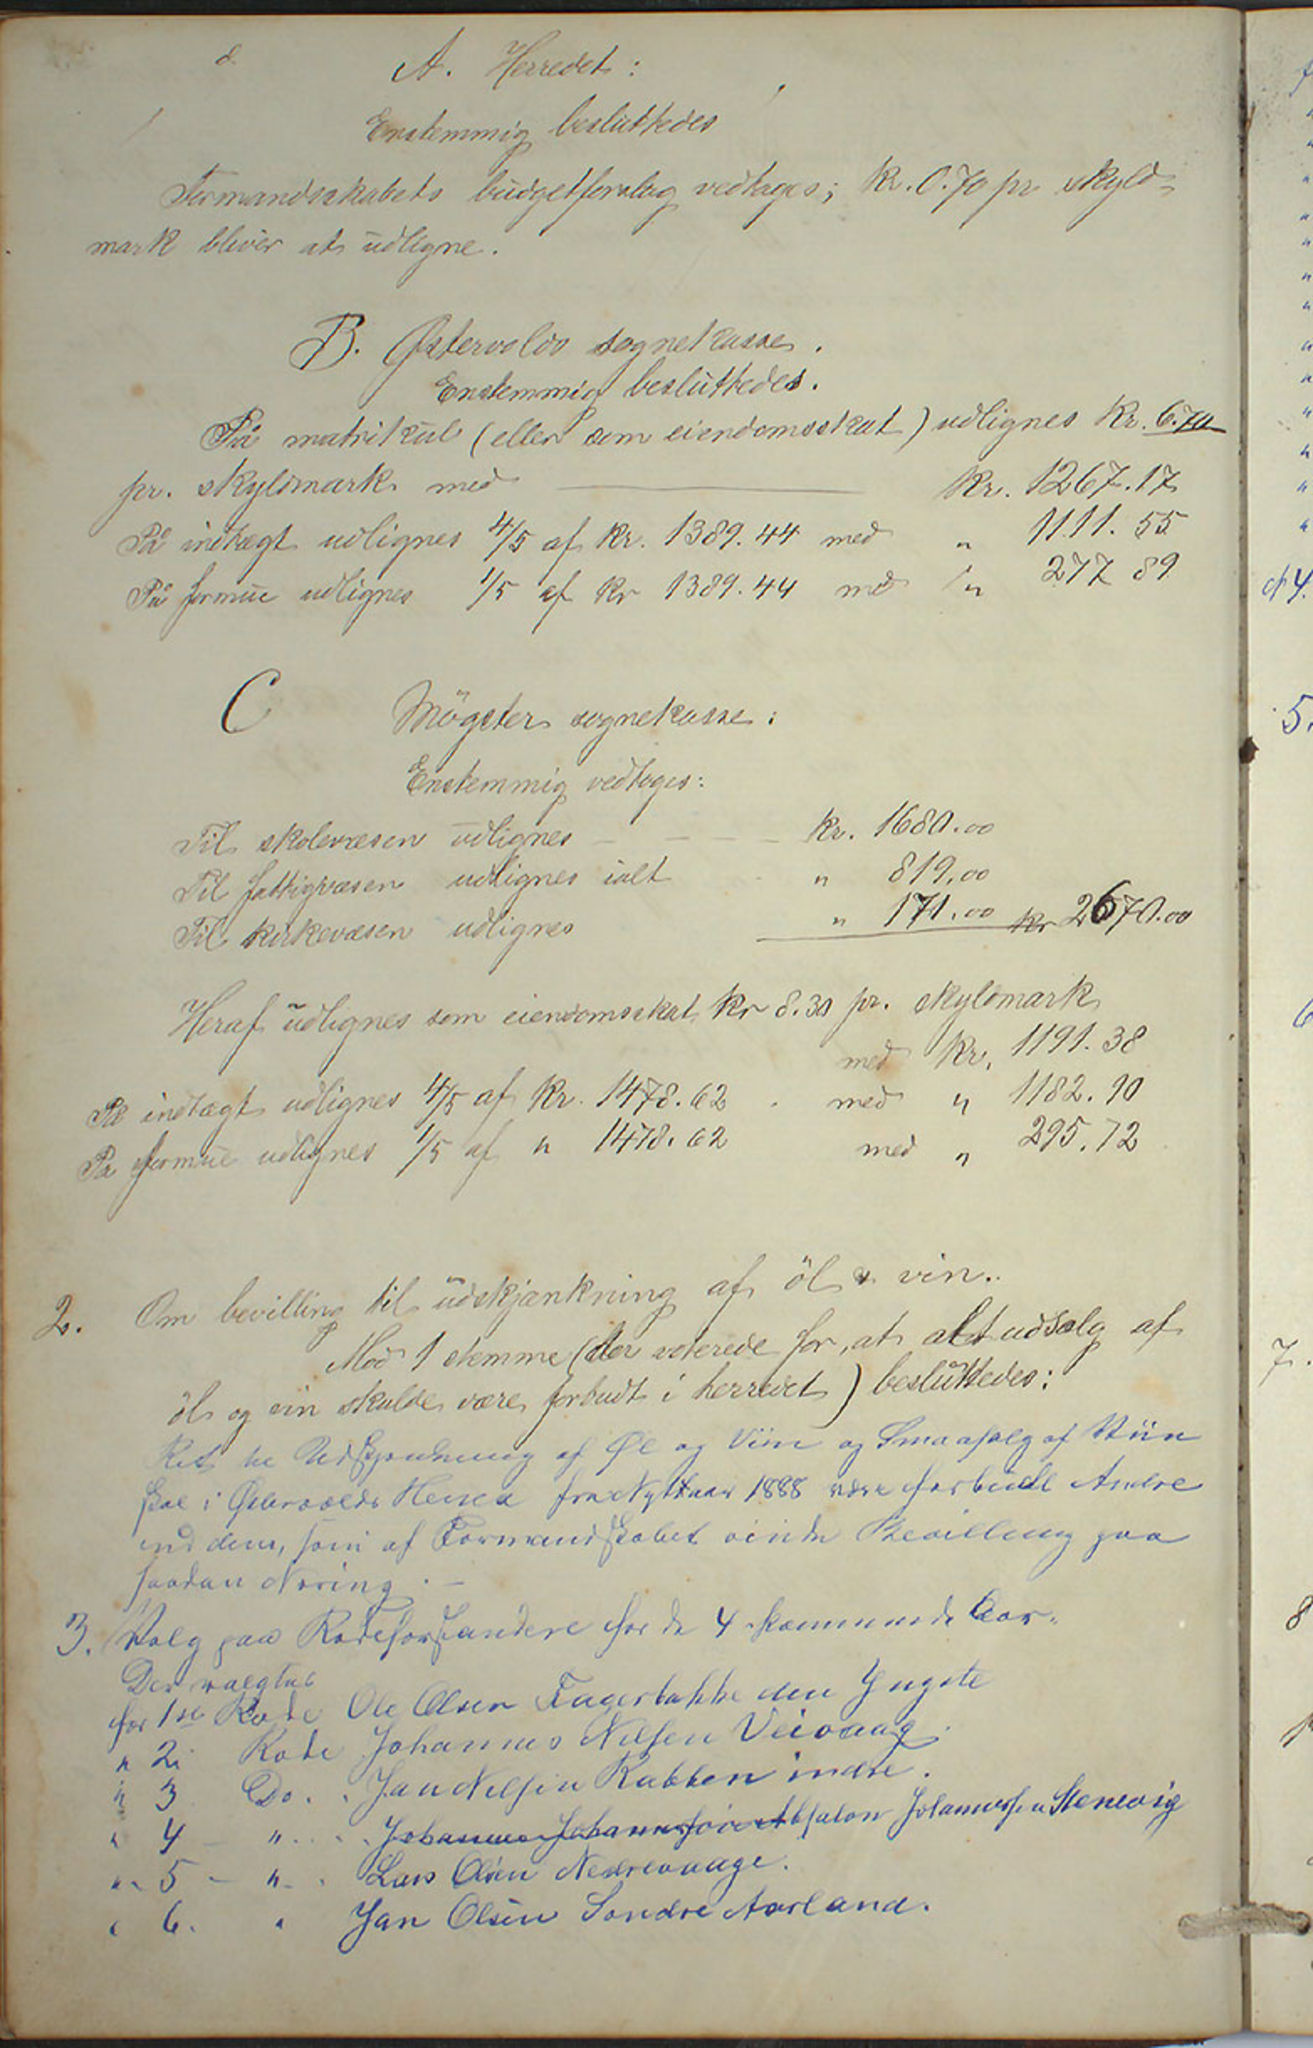 A. Herredet:
Enstemmig besluttedes
Formandsskabets budgetforslag vedtages; kr. 0.70 pr skyld-
mark bliver at udligne.
B. Østervolds sognekasse.
Enstemmig besluttedes.
På matrikul (eller som eiendomsskat) udlignes kr. 6.70
pr. skyldmark med kr. 1267.17
På indtægt udlignes 4/5 af kr. 1389.44 med " 1111.55
På formue udlignes 1/5 af kr 1389.44 med " 277 89
C Mögster sognekasse:
Enstemmig vedtoges:
Til skolevæsen udlignes kr. 1680.00
Til fattigvæsen udlignes ialt " 819,00
Til kirkevæsen udlignes " 171.00 kr 2670.00
Heraf udlignes som eiendomsskat kr 8.30 pr. skyldmark
med kr. 1191.38
På indtægt udlignes 4/5 af kr. 1478.62 med " 1182.90
På formue udlignes 1/5 af " 1478.62 med " 295.72
2. Om bevilling til udskjænkning af öl & vin.
Mod 1 stemme (der voterede for, at alt udsalg af
öl og vin skulde være forbudt i herredet) besluttedes:
Udskjænkning af Øl og Viin og Smaasalg af Viin
skal i Østervolds Herred fra Nyttaar 1888 være forbudt Andre
end dem, som af Formandskabet Bevilling paa
saadan Næring.
3. Valg paa Rodeforstandere for de 4 kommende Aar.
Der valgtes
for 1ste Rode Ole Olsen Fagerbakke den Yngste
" 2. Rode Johannes Nilsen Veivaag.
" 3 Do. Jan Nilsen Rabben indre.
" 4 " Johannes Johannessen Absalon Johannessen Stenevig
" 5 - " Lars Olsen Nedrevaage.
" 6. " Jan Olsen Söndre Aarland.